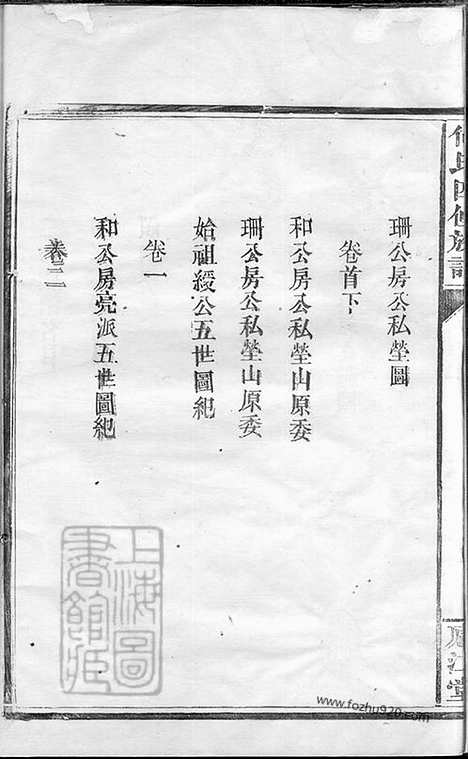 珊公房公私塋圖
卷首下
和公房公私塋山原委
珊公房公私塋山原委
始祖綬公五世圖紀
卷一
和公房亮派五世圖紀
卷二
氏四修族譜
堂
上海圖書館藏
www.fozhu920.com